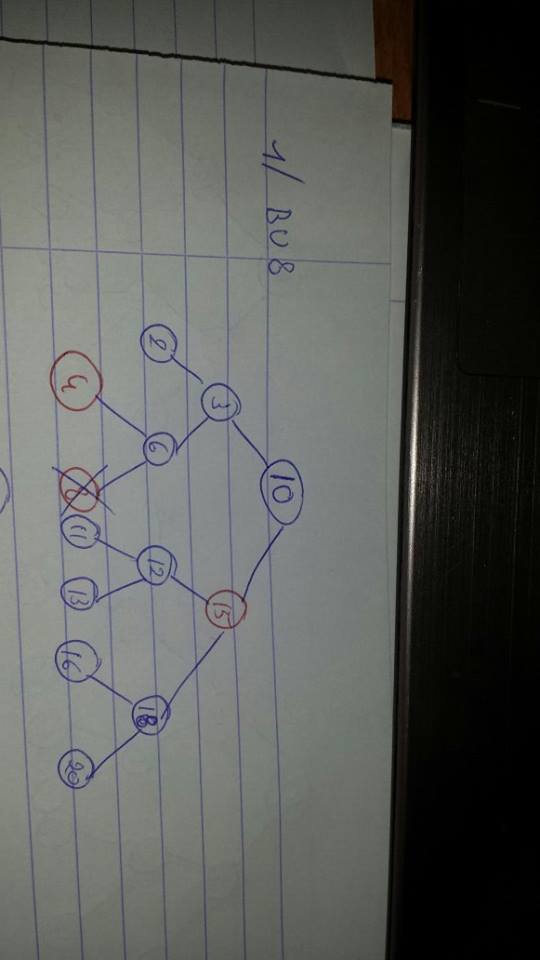 1/ BU8
10
3 15
2 6 12 18
4 8 11 13 16 20